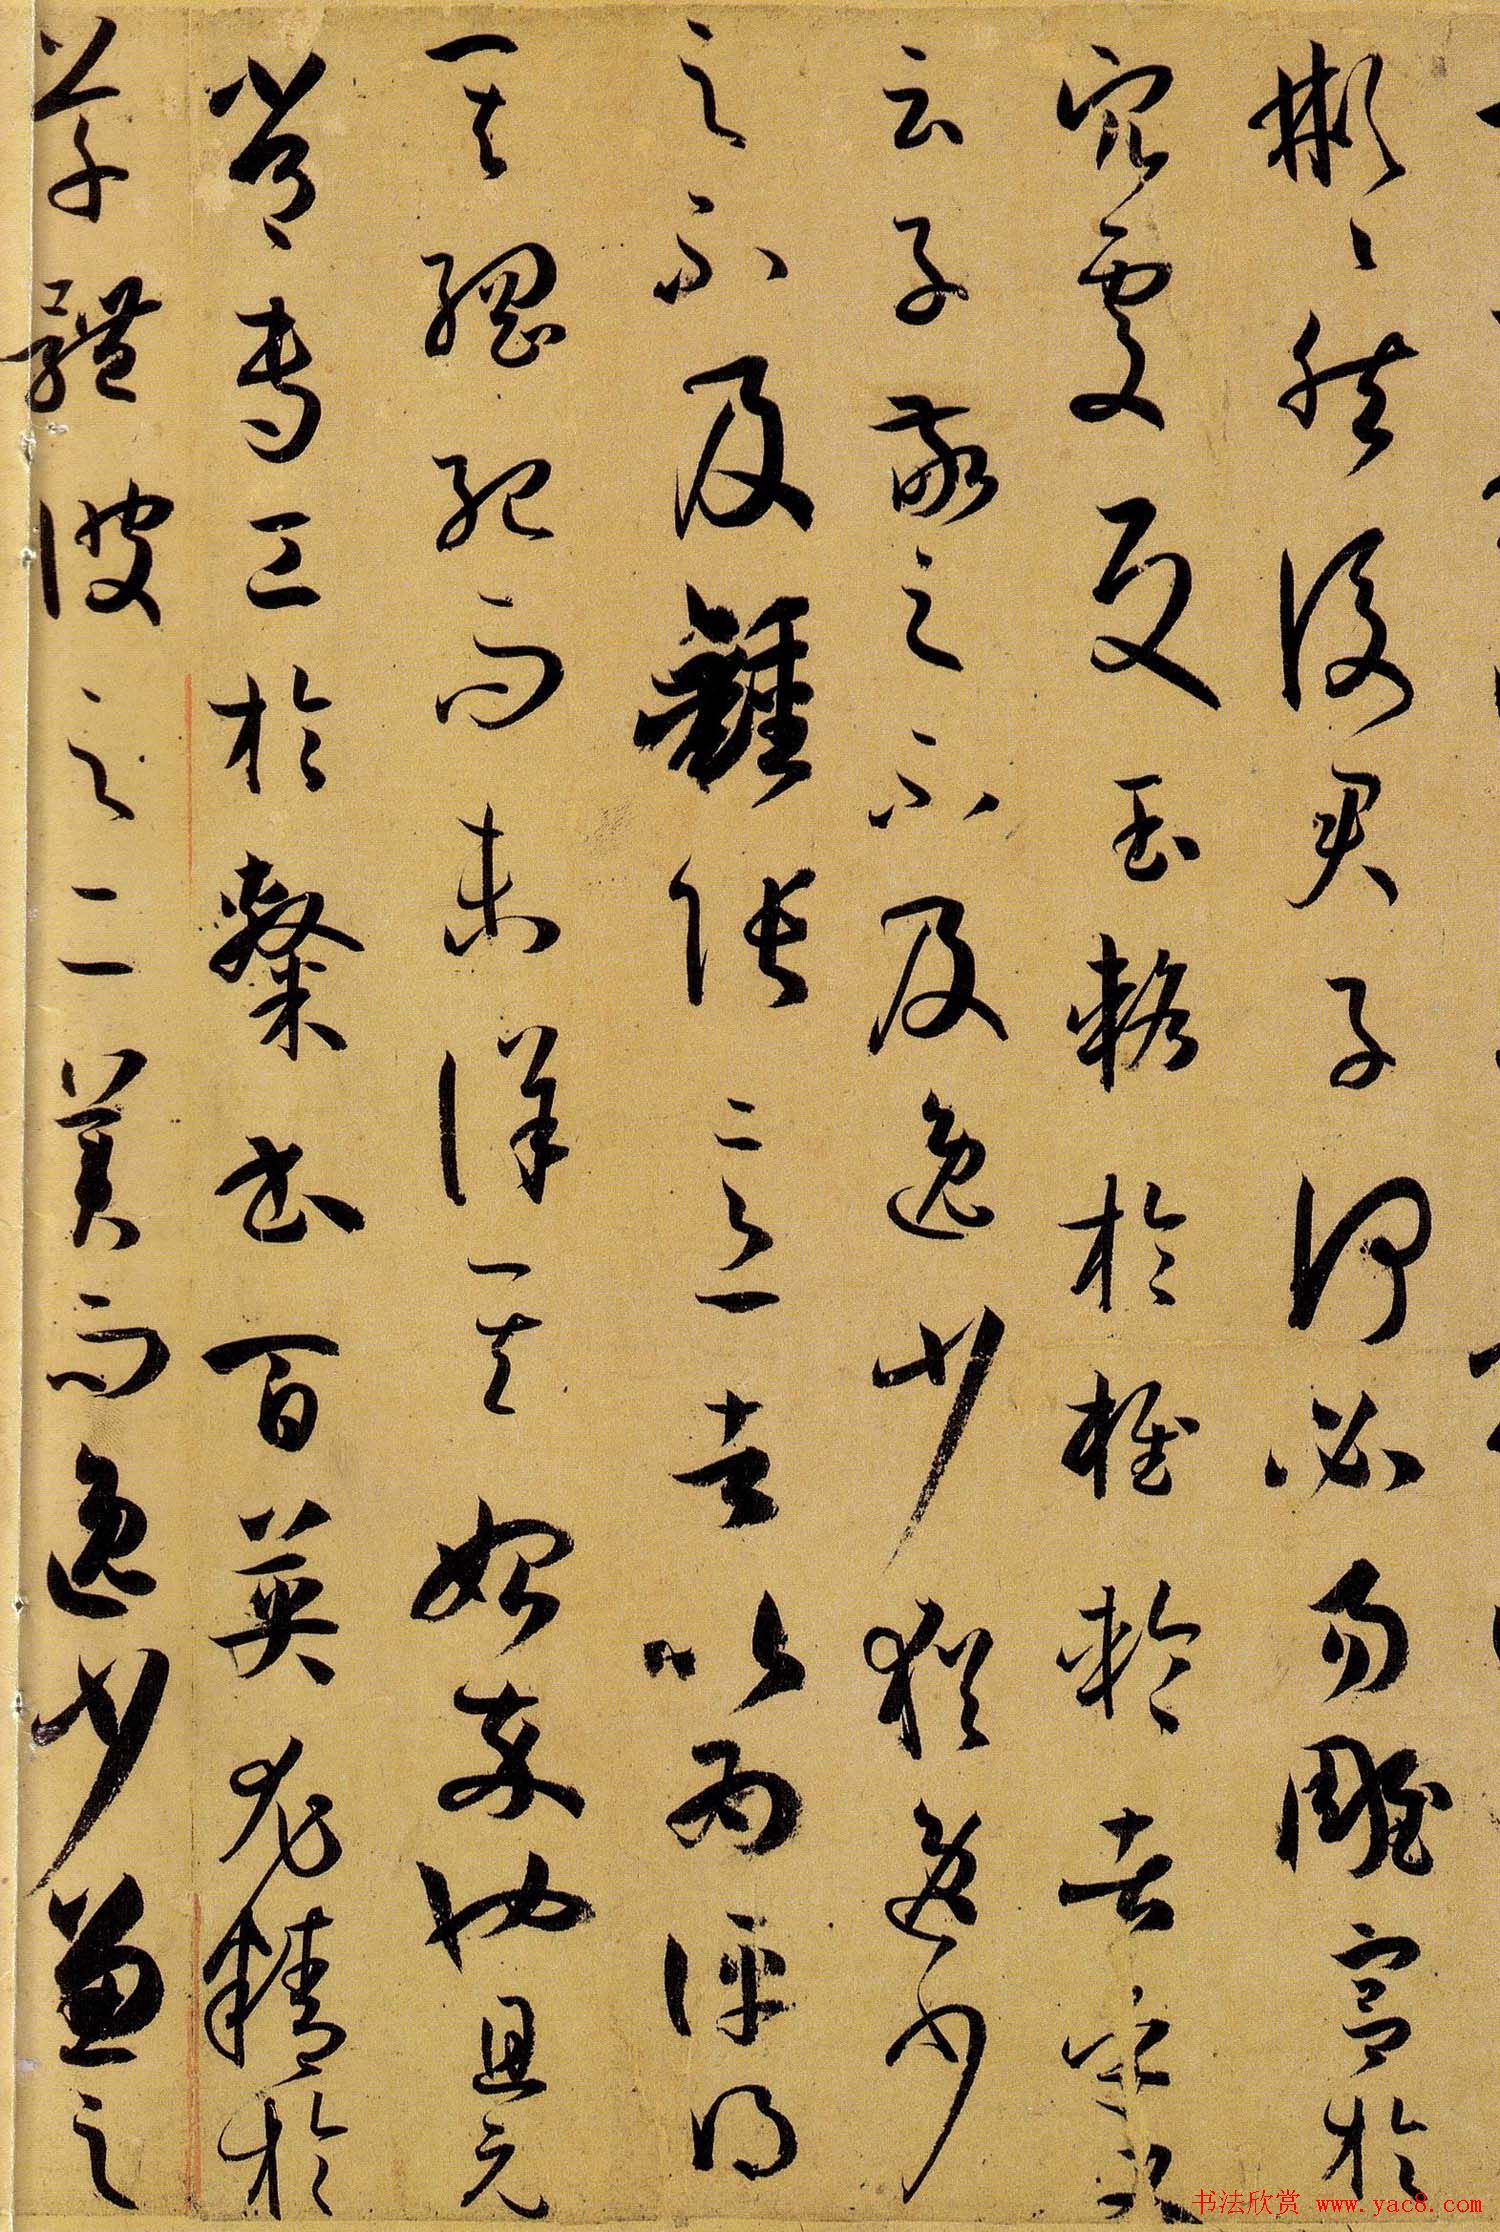 彬彬然後君子何必易雕宮於
穴處反玉輅於椎輪者乎又
云子敬之不及逸少猶逸少
之不及鍾張意者以為評得
其綱紀而未詳其始卒也且元
常專工於隸書百英尤精於
草體彼之二美而逸少兼之
书法欣赏 www.yac8.com